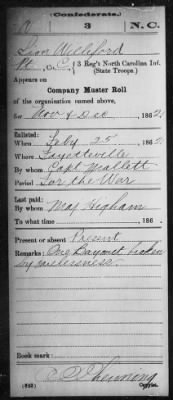 (Confederate.)
3 N. C.
Williford
Co. C, 3 Reg't North Carolina Inf.
(State Troops.)
Appears on
Company Muster Roll
of the organization named above,
for Nov & Dec, 1862.
Enlisted:
When Feby 25, 186
Where Fayetteville
By whom Capt Mallett
Period For the War
Last paid:
By whom Maj Higham
To what time , 186 .
Present or absent Present
Remarks: One Bayonet broken
by carelessness.
Book mark:
(642)
Copyist.